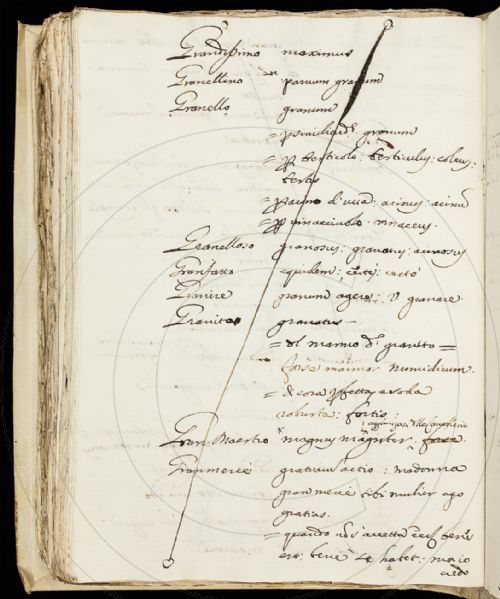 Grandissimo maximus
Granellino parvum granum
Granello granum
= p similitud. granum
= p testicolo: testiculus: coleus:
testis
= p acino d'uva: acinus: acinum
= p vinacciuolo vinaceus.
Granelloso granosus: acinosus
Granfatto equidem: certe: certo
Granire granum agere: granare
Granito granatus
= il marmo d. granito =
forse marmor numidicum.
= di cosa pfetta e soda
robusta: fortis:
Gran Maestro magnus magister
Granmercè gratiarum actio: madonna
gran mercè tibi mulier ago
gratias.
= quando
est: bene se habet: